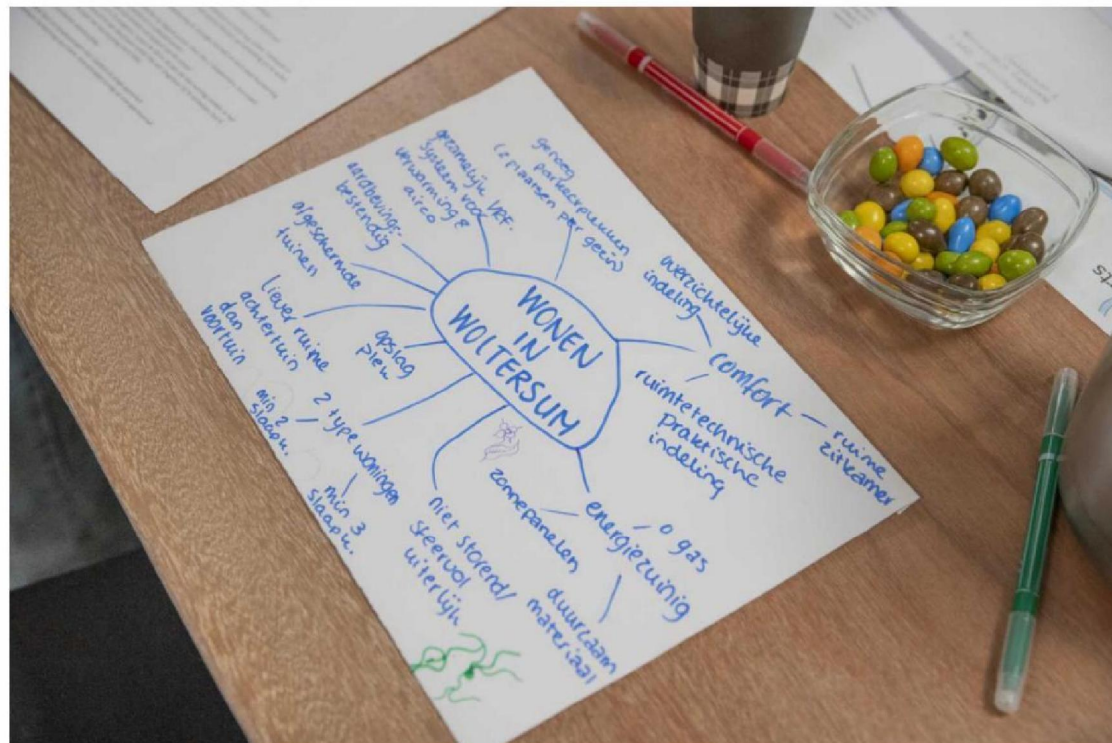 WONEN
IN
WOLTERSUM
genoeg
parkeerplekken
(2 plaatsen per gezin)
overzichtelijke
indeling
comfort
ruime
zitkamer
ruimtetechnische
praktische
indeling
energiezuinig
0 gas
duurzaam
materiaal
zonnepanelen
niet storend/
sfeervol
uiterlijk
2 type woningen
min 2
slaapk.
min 3
slaapk.
opslag
plek
liever ruime
achtertuin
dan
voortuin
afgeschermde
tuinen
aardbevings-
bestendig
gezamelijk
systeem voor
verwarming &
airco